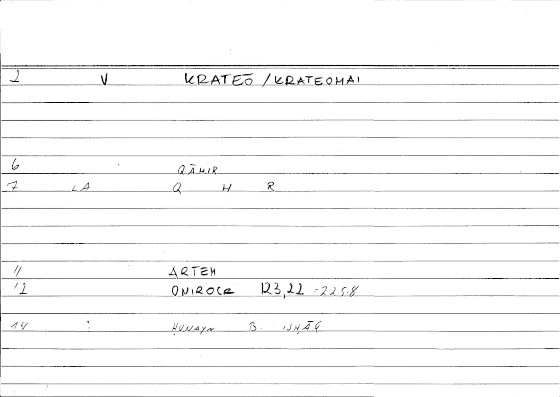 2 V KRATEŌ / KRATEOMAI
6 QĀHIR
7 LA Q H R
11 ARTEM
12 ONIROCR 123,22 = 225.8
14 : ḤUNAYN B. ISḤĀQ